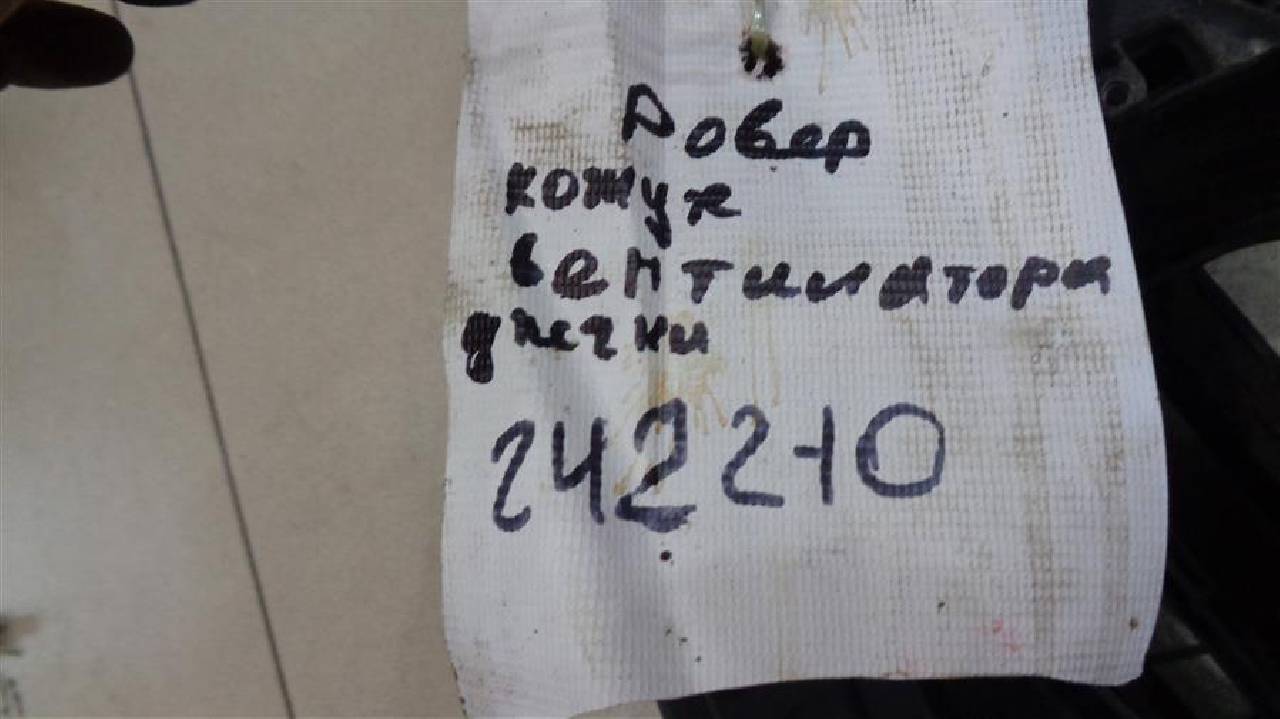 Ровер
кожук
вентилятора
печки
2422-10